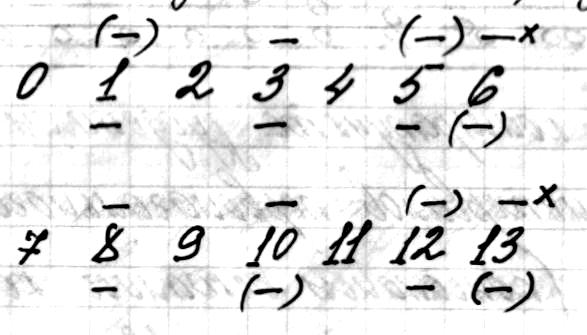 (—) — (—) —x
0 1 2 3 4 5 6
— — — (—)
— — (—) —x
7 8 9 10 11 12 13
— (—) — (—)